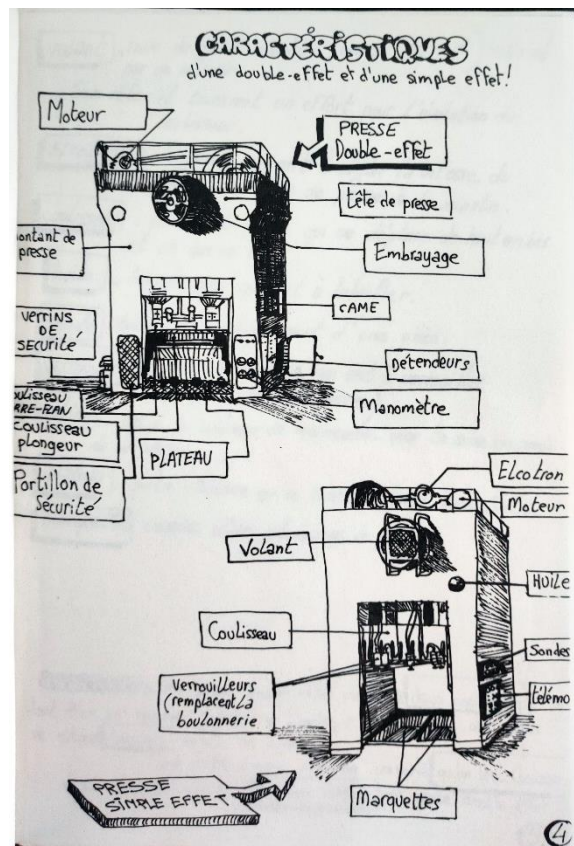 CARACTÉRISTIQUES
d'une double-effet et d'une simple effet!
Moteur
PRESSE
Double-effet
tête de presse
Embrayage
ontant de
presse
CAME
VERRINS
DE
SECURITÉ
Détendeurs
Manomètre
oulisseau
RRE-FLAN
Coulisseau
plongeur
PLATEAU
Portillon de
Sécurité
Elcotron
Moteur
Volant
HUILE
Coulisseau
Sondes
télémo
Verrouilleurs
(remplacent la
boulonnerie
Marquettes
PRESSE
SIMPLE EFFET
4